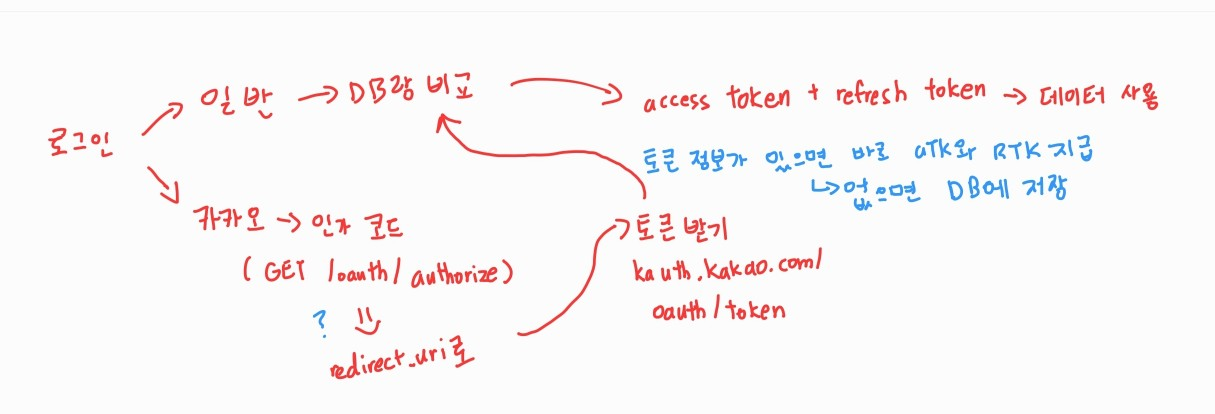 로그인
일반 → DB랑 비교
access token + refresh token → 데이터 사용
토큰 정보가 있으면 바로 ATK와 RTK 지급
↳ 없으면 DB에 저장
카카오 → 인가 코드
(GET /oauth/authorize)
?
redirect_uri로
토큰 받기
kauth.kakao.com/
oauth/token